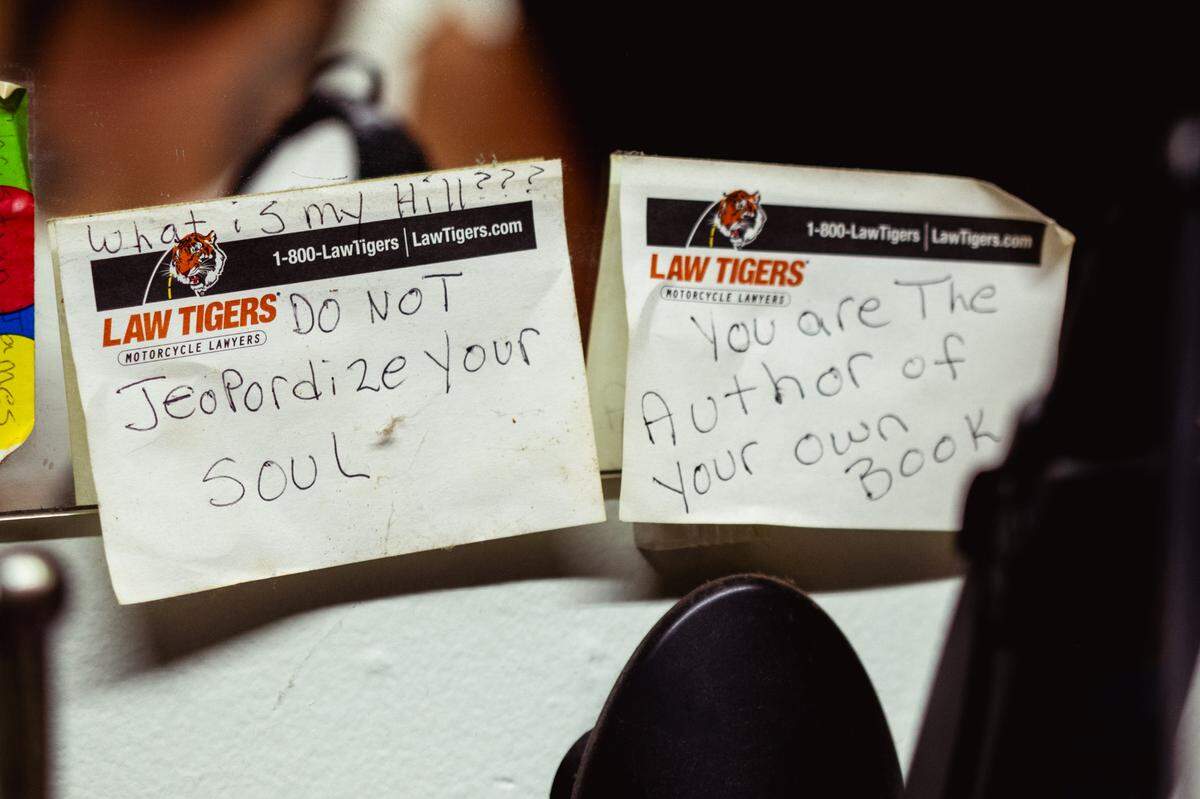 What is my Hill???
1-800-LawTigers | LawTigers.com
LAW TIGERS
MOTORCYCLE LAWYERS
DO NOT
JeoPordize Your
SOUL
1-800-LawTigers | LawTigers.com
LAW TIGERS
MOTORCYCLE LAWYERS
You are The
Author of
Your own
Book